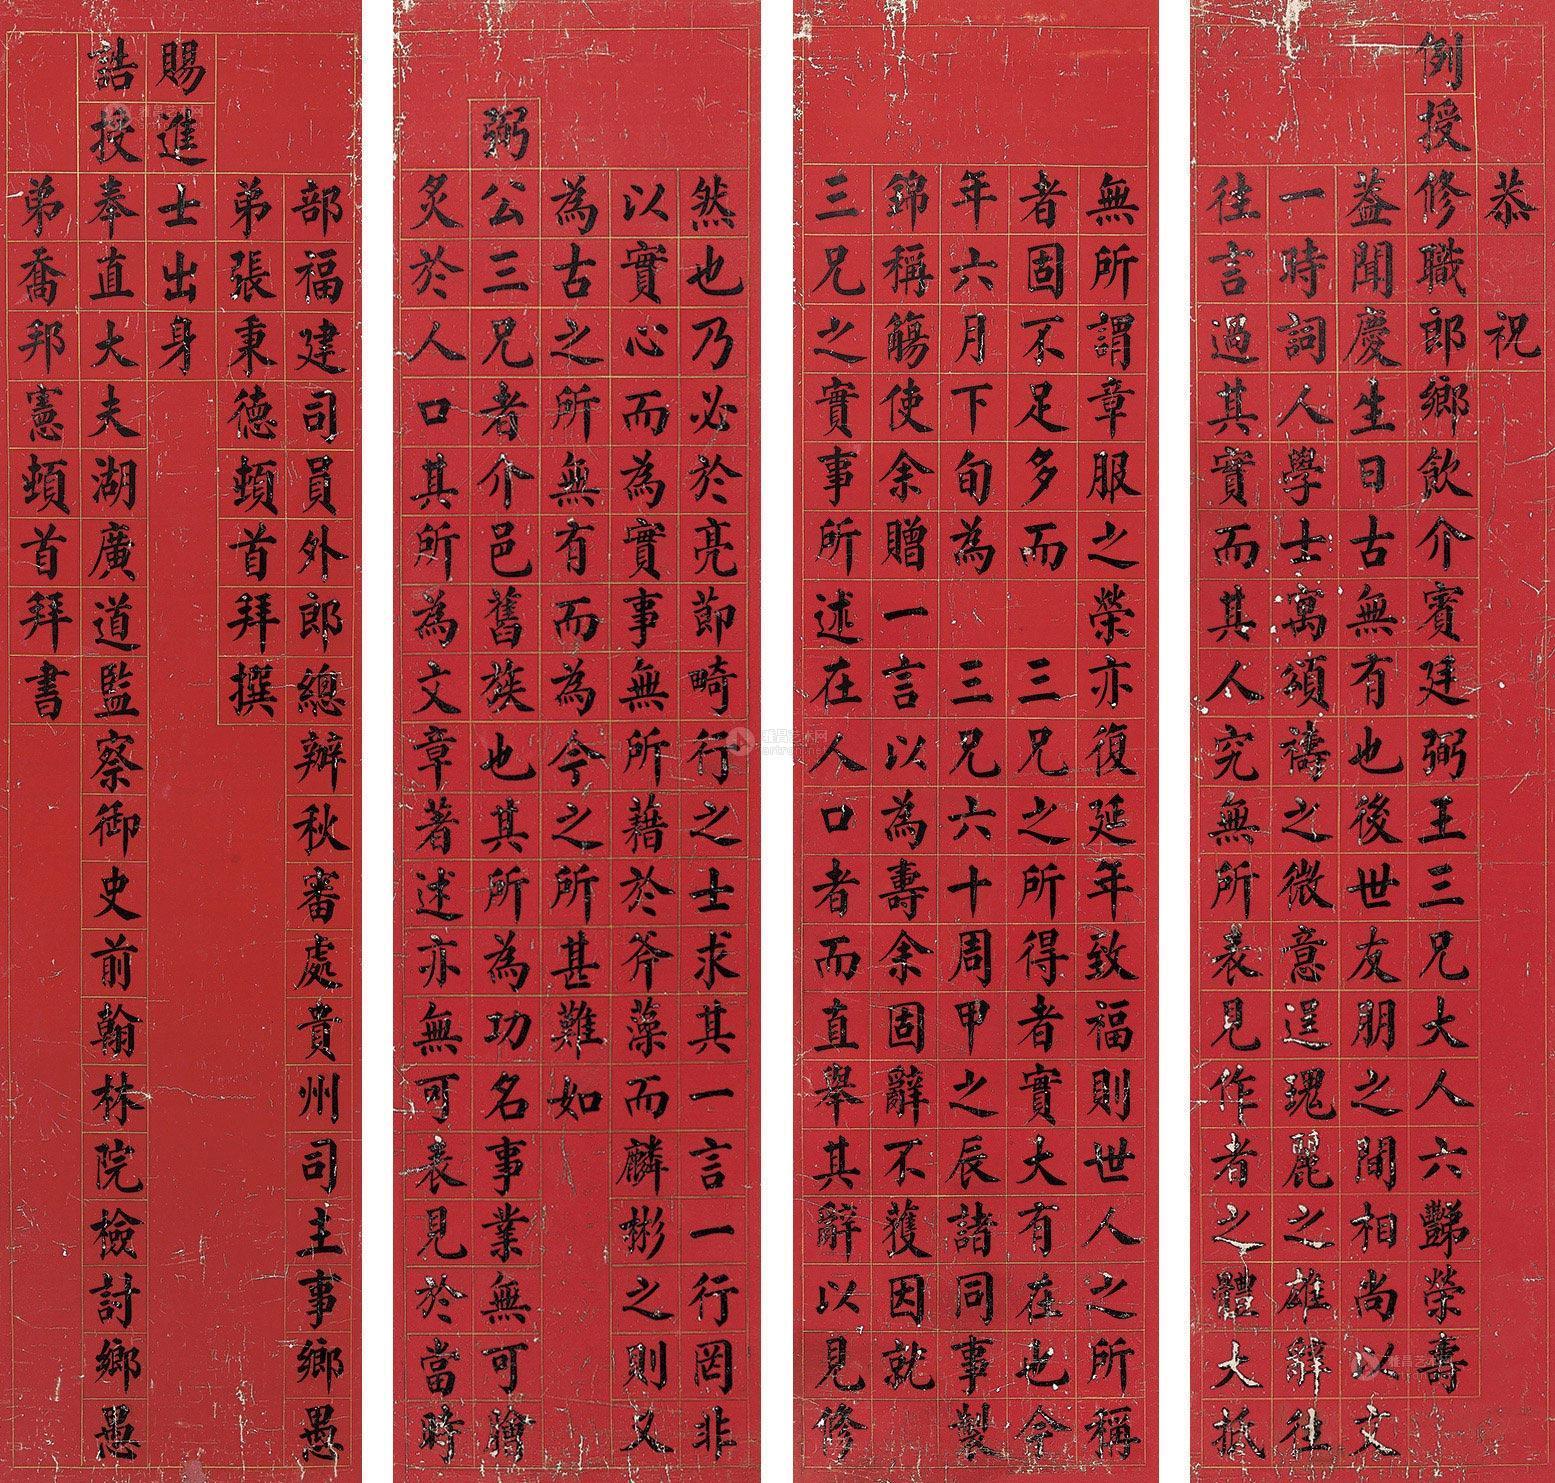 恭祝
例授修職郎鄉飲介賓廷弼王三兄大人六豒榮壽
葢聞慶生日古無有也後世友朋之間相尚以文
一時詞人學士寓頌禱之微意逞瑰麗之雄辭往
往言過其實而其人究無所表見作者之體大抵
無所謂章服之榮亦復延年致福則世人之所稱
者固不足多而三兄之所得者實大有在也今
年六月下旬為三兄六十周甲之辰諸同事製
錦稱觴使余贈一言以為壽余固辭不獲因就
三兄之實事所述在人口者而直舉其辭以見修
然也乃必於亮節畸行之士求其一言一行罔非
以實心而為實事無所藉於斧藻而麟彬之則又
為古之所無有而為今之所甚難如
弼公三兄者介邑舊族也其所為功名事業無可膾
炙於人口其所為文章著述亦無可表見於當時
部福建司員外郎總辦秋審處貴州司主事鄉愚
弟張秉德頓首拜撰
賜進士出身
誥授奉直大夫湖廣道監察御史前翰林院檢討鄉愚
弟喬邦憲頓首拜書
雅昌艺术网
artron.net